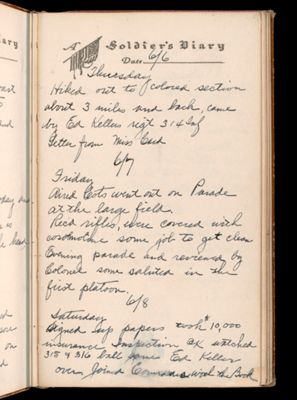 A Soldier's Diary
Date 6/6
Thursday
Hiked out to colored section
about 3 miles and back, came
by Ed Kellers rigt 314 Inf
Letter from Miss
6/7
Friday
Aired Cots went out on Parade
at the large field.
Recd rifles, were covered with
cosomoline some job to get clean
Evening parade and reviewed by
Colonel some saluted in the
first platoon.
6/8
Saturday
Signed up papers took $10,000
insurance Inspection Ex watched
315 & 316 ball game Ed Keller
over Joined Comrads with the Book